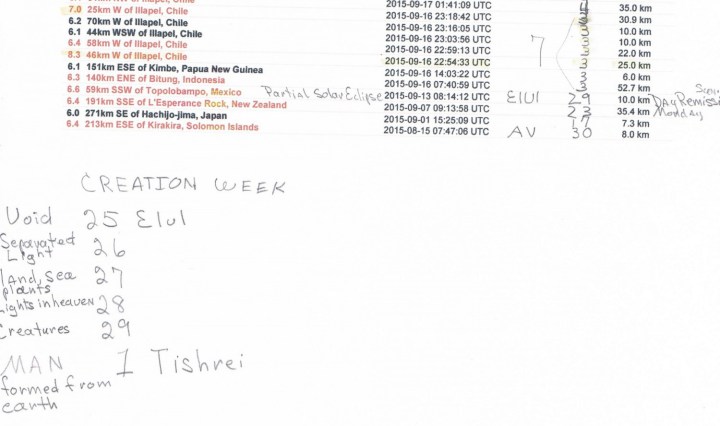 W of Illapel, Chile 2015-09-17 01:41:09 UTC 4 35.0 km
7.0 25km W of Illapel, Chile 2015-09-16 23:18:42 UTC 30.9 km
6.2 70km W of Illapel, Chile 2015-09-16 23:16:05 UTC 3 10.0 km
6.1 44km WSW of Illapel, Chile 2015-09-16 23:03:56 UTC 7 3 10.0 km
6.4 58km W of Illapel, Chile 2015-09-16 22:59:13 UTC 3 22.0 km
8.3 46km W of Illapel, Chile 2015-09-16 22:54:33 UTC 3 25.0 km
6.1 151km ESE of Kimbe, Papua New Guinea 2015-09-16 14:03:22 UTC 3 6.0 km
6.3 140km ENE of Bitung, Indonesia 2015-09-16 07:40:59 UTC 3 52.7 km
6.6 59km SSW of Topolobampo, Mexico Partial Solar Eclipse 2015-09-13 08:14:12 UTC Elul 29 10.0 km Day Remissi
6.4 191km SSE of L'Esperance Rock, New Zealand 2015-09-07 09:13:58 UTC 23 35.4 km Monday
6.0 271km SE of Hachijo-jima, Japan 2015-09-01 15:25:09 UTC 17 7.3 km
6.4 213km ESE of Kirakira, Solomon Islands 2015-08-15 07:47:06 UTC AV 30 8.0 km
CREATION WEEK
Void 25 Elul
Separated
Light 26
land, sea 27
plants
Lights in heaven 28
Creatures 29
MAN 1 Tishrei
formed from
earth